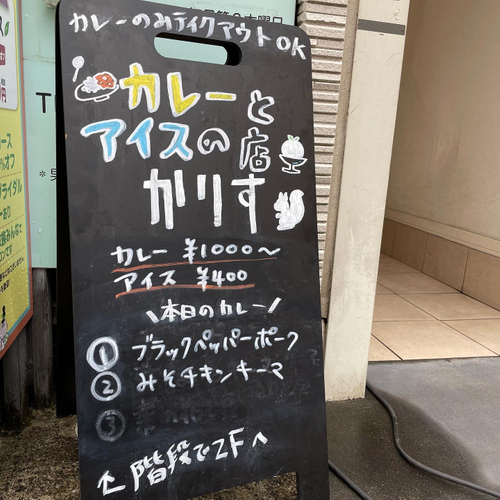 カレーのみテイクアウトOK
カレーと
アイスの店
かりす
カレー ¥1000〜
アイス ¥400
\本日のカレー/
① ブラックペッパーポーク
② みそチキンキーマ
③
↑階段で2Fへ